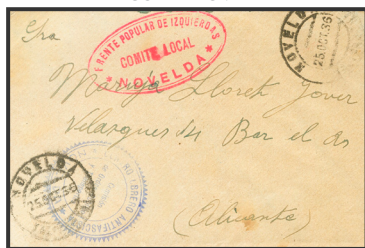 Sra
FRENTE POPULAR DE IZQUIERDAS
COMITE LOCAL
* NOVELDA *
NOVELDA
25.OCT.36
Maruja Lloret Jover
Velazques 14 Bar el As
NOVELDA
25.OCT.36
OBRERO ANTIFASC
(Alicante)